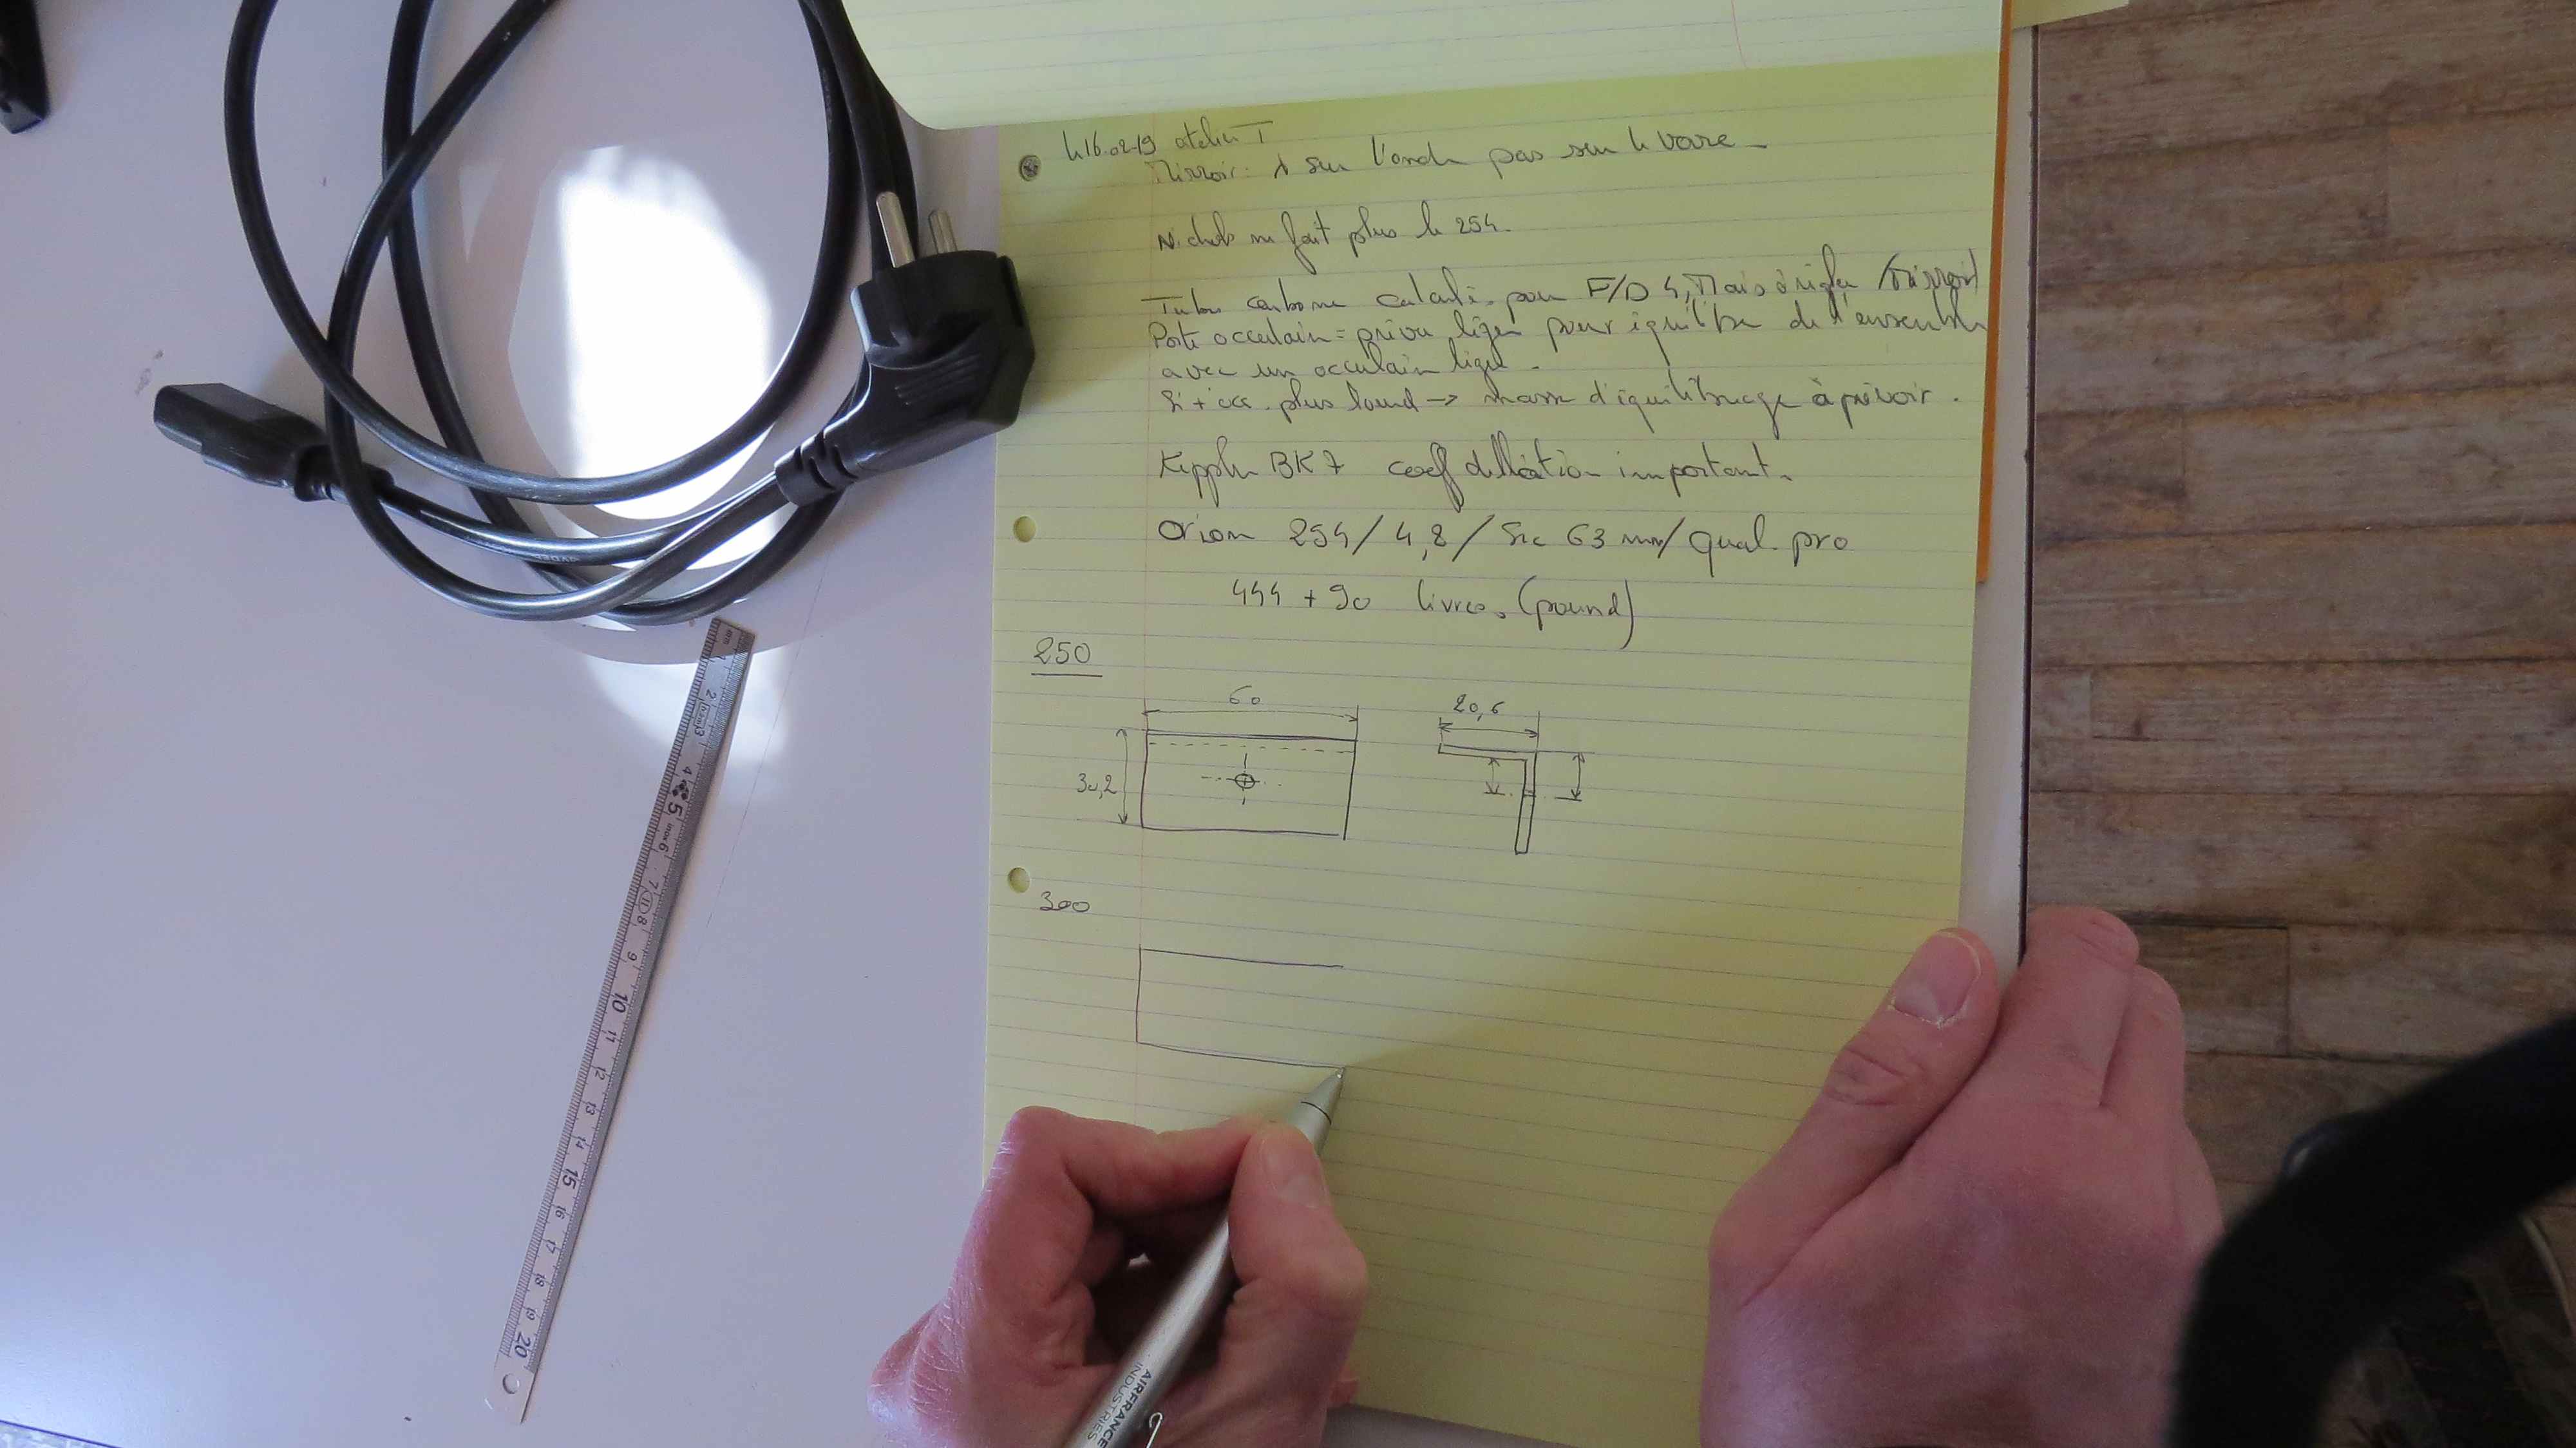 16.02.19 atelier T
Mirroir: λ sur l'onde pas sur le
Nichols ne fait plus le 254.
Tube carbone calculé pour F/D 4, Mais à régler / mirroir
Porte occulair = prévu léger pour équilibre de l'ensemble
avec un occulair léger.
Si + occ. plus lourd → masse d'équilibrage à prévoir.
Keppler BK7 coeff dillatation important.
Orion 254 / 4,8 / Sec 63 mm / qual. pro
444 + 90 livres. (pound)
250
60
20,6
30,2
300
cm 1 2 3 4 5 inox 6 7 8 9 10 11 12 13 14 15 16 17 18 19 20
AIRFRANCE
INDUSTRIES